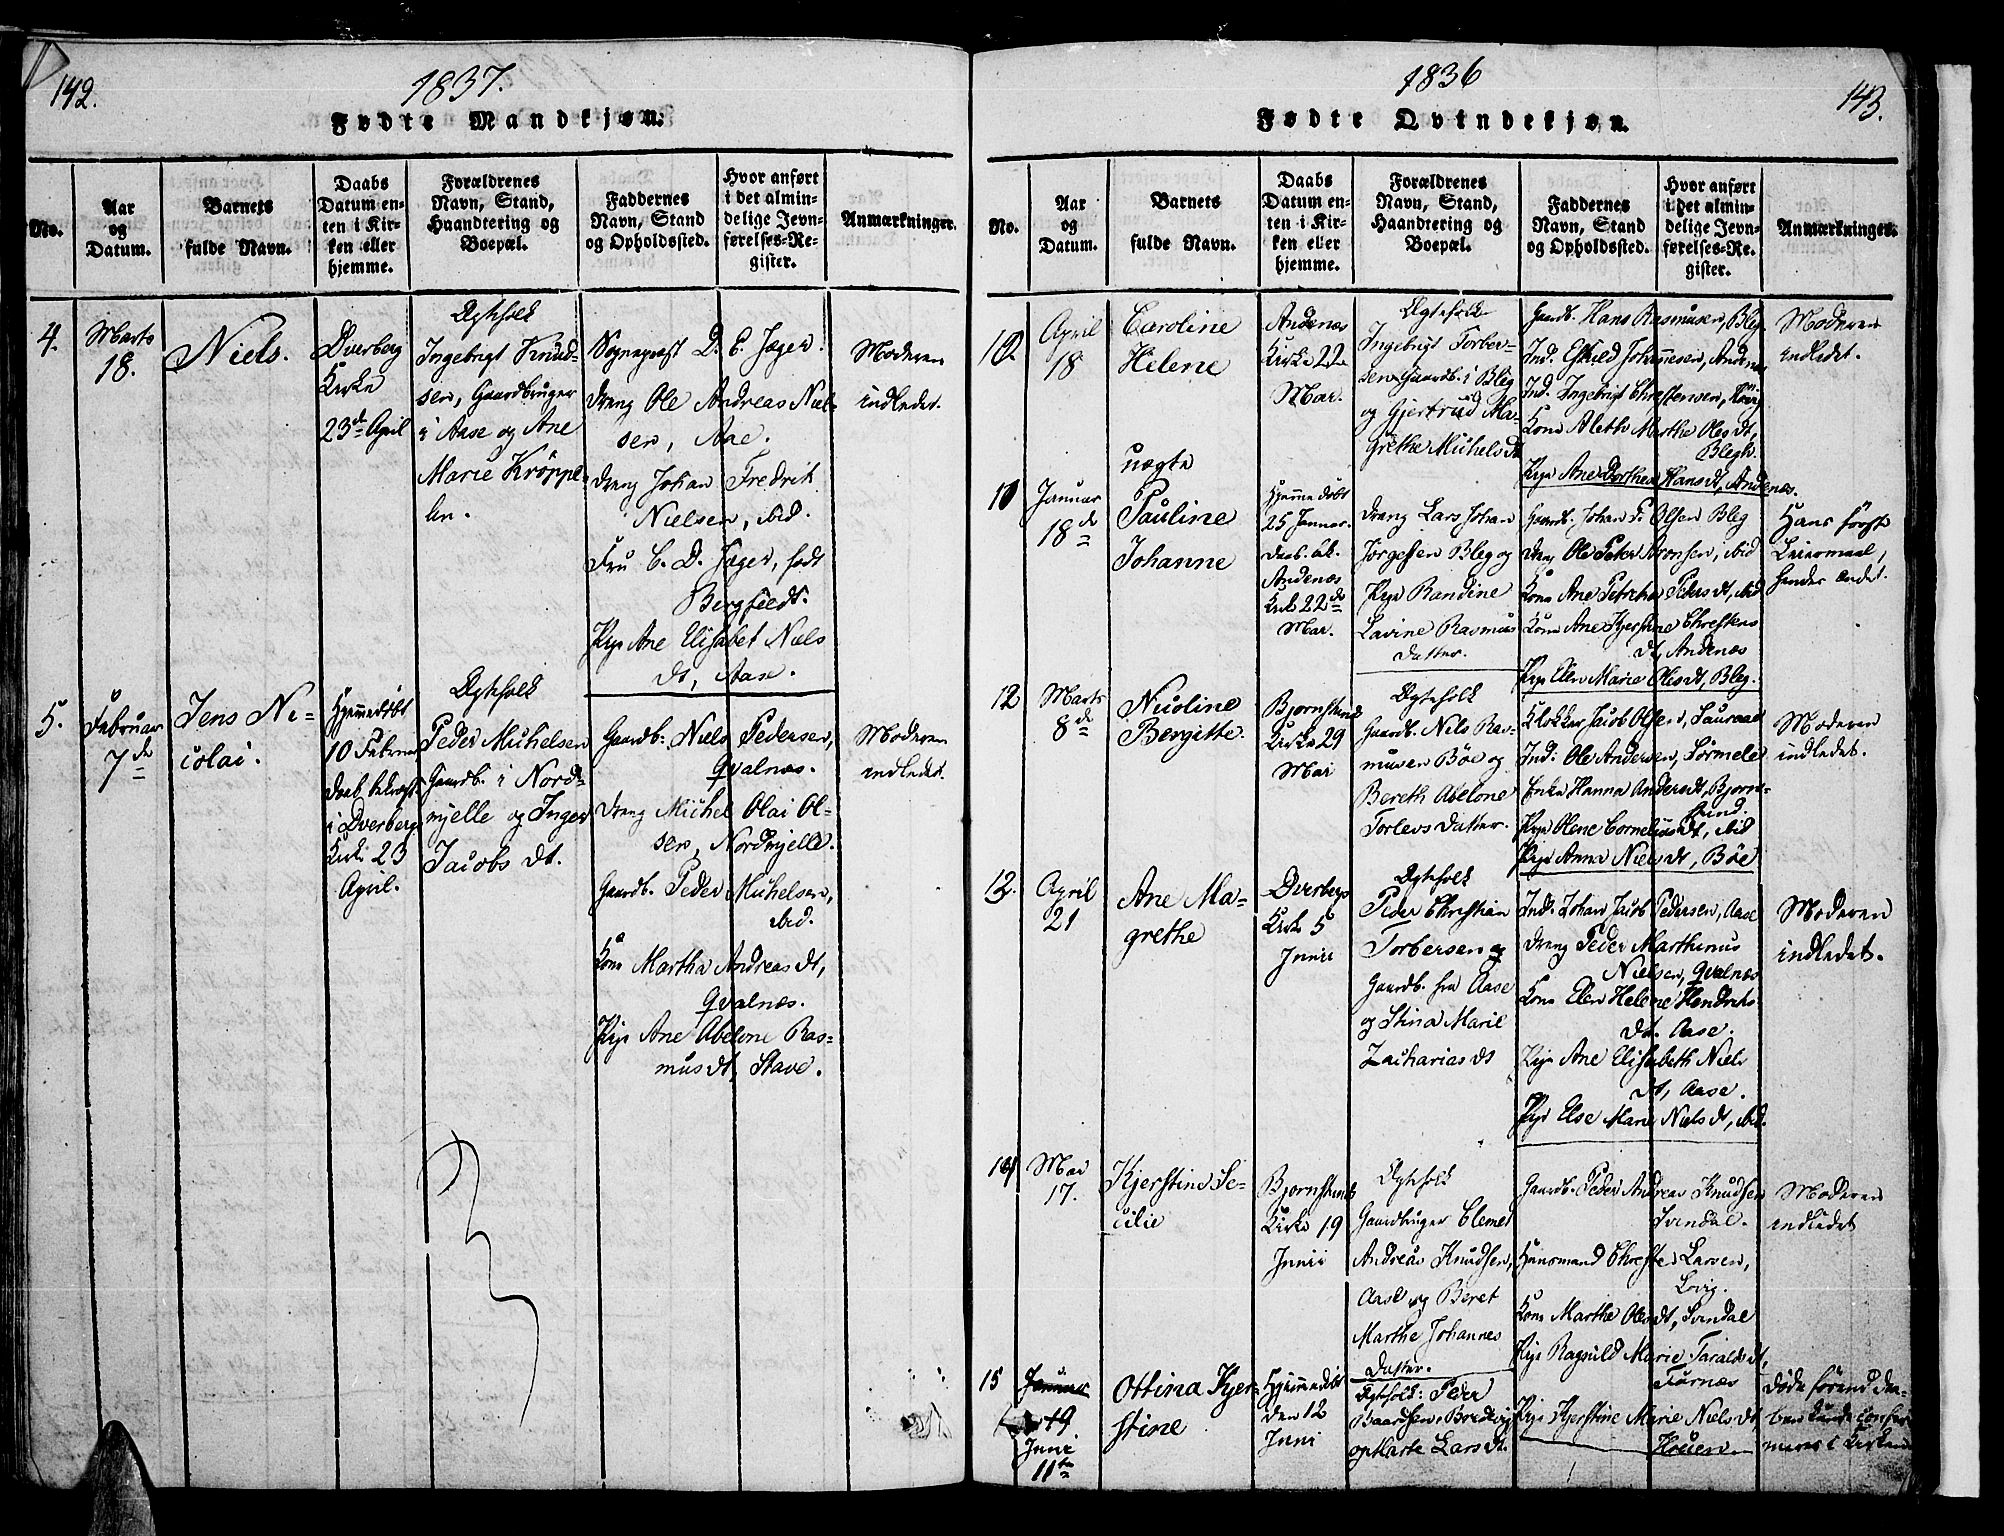 142.
1837.
Fødte Mandkjøn.
No.
Aar
og
Datum.
Barnets
fulde Navn.
Daabs
Datum en-
ten i Kir-
ken eller
hjemme.
Forældrenes
Navn, Stand,
Haandtering og
Boepæl.
Faddernes
Navn, Stand
og Opholdssted.
Hvor anført
i det almin-
delige Jevn-
førelses-Re-
gister.
Anmærkninger.
4.
Marts
18.
Niels.
Dverberg
Kirke
23de April
Ægtefolk
Ingebrigt Knud-
sen, Gaardbruger
i Aase og Ane
Marie Kröppe-
lin.
Sognepræst D. C. Jæger.
Dreng Ole Andreas Niel-
sen, Aae.
Dreng Johan Fredrik
Nielsen, ibid.
Fru C. D. Jæger, født
Bergfeldt.
Pige Ane Elisabet Niels
dt, Aase.
Moderen
indledet.
5.
Februar
7de
Jens Ni-
colai.
Hjemmedöbt
10 Februar
Daab. bekræft.
i Dverberg
Kirke 23
April.
Ægtefolk
Peder Michelsen
Gaardb. i Nord-
mjelle og Inger
Jacobs dt.
Gaardb. Niels Pedersen,
Qvalnæs.
Dreng Michel Olai Ol-
sen, Nordmjelle.
Gaardb. Peder Michelsen,
ibid.
Kone Martha Andreas dt,
Qvalnæs.
Pige Ane Abelone Ras-
mus dt, Stave.
Moderen
indledet.
1836
143.
Fødte Qvindekjøn.
No.
Aar
og
Datum.
Barnets
fulde Navn.
Daabs
Datum en-
ten i Kir-
ken eller
hjemme.
Forældrenes
Navn, Stand,
Haandtering og
Boepæl.
Faddernes
Navn, Stand
og Opholdssted.
Hvor anført
i det almin-
delige Jevn-
førelses-Re-
gister.
Anmærkninger.
10.
April
18
Caroline
Helene
Andenæs
Kirke 22
Mai.
Ægtefolk
Ingebrigt Torber-
sen Gaardb. i Bleg
og Gjertrud Ma-
grethe Michels dt
Gaardb. Hans Rasmusen, Bleg
Ind. Johannesen, Andenæs
Ind. Ingebrigt Christensen,
Kone Aleth Marthe Oles dt,
Blegh.
Pige Ane Dorthea Hans dt, Andenæs.
Moderen
indledet.
11
Januar
18de
uægte
Pauline
Johanne
Hjemmedöbt
25 Januar.
Daab. bek.
Andenæs
Kirke 22de
Mai.
Dreng Lars Johan
Jørgessen Bleg og
Pige Randine
Lavine Rasmus
datter.
Gaardb. Johan F. Olsen Bleg
Dreng Ole Peter Aronsen, ibid
Kone Ane Petrika Peders dt, ibid
Kone Ane Kjerstine Christens
dt, Andenæs
Pige Elen Marie Oles dt, Bleg.
Hans første
Leiermaal,
hendes andet.
12
Marts
8de
Nicoline
Bergitte.
Bjørnskinds
Kirke 29
Mai
Ægtefolk
Gaardb. Nils Ras-
musen Böe og
Bereth Abelone
Torlevs datter.
Klokker Jacob Olsen,
Ind: Ole Andersen, Sørmele
Enke Hanna Anders dt, Bjørn-
skind
Pige Olene Cornelius dt, ibid
Pige Anna Niels dt, Böe
Moderen
indledet.
12.
April
21
Ane Ma-
grethe
Dverbergs
Kirke 5
Junii
Ægtefolk
Peder Christian
Torbersen
Gaardb. fra Aase
og Stina Marie
Zacharias dt
Ind. Johan Jacob Pedersen, Aase
Dreng Peder Marthinus
Nielsen, Qvalnæs
Kone Elen Helene Hendriks
dt. Aase.
Pige Ane Elisabeth Niels
dt, Aase.
Pige Else Marie Niels dt, ibid.
Moderen
indledet.
14
Mai
17.
Kjerstine Se-
cilie
Bjørnskinds
Kirke 19
Junii
Ægtefolk
Gaardbruger Clemet
Andreas Knudsen,
Aase og Beret
Marthe Johannes
Datter.
Gaardb. Peder Andreas Knudsen
Svendal.
Huusmand Chresten Larsen,
Lovig.
Kone Marthe Oles dt, Svendal
Pige Ragnild Marie Taralds dt,
Tornæs
Pige Kjerstine Marie Niels dt,
Moderen
indledet
15
Januar
19
Juni
11te
Ottina Kjer-
stine
Hjemmedöbt
den 12
Juni
Ægtefolk: Peder
Baardsen, Bredvig
og Marte Lars dt.
Døde førend Daa-
ben kunde confir-
meres i Kirken